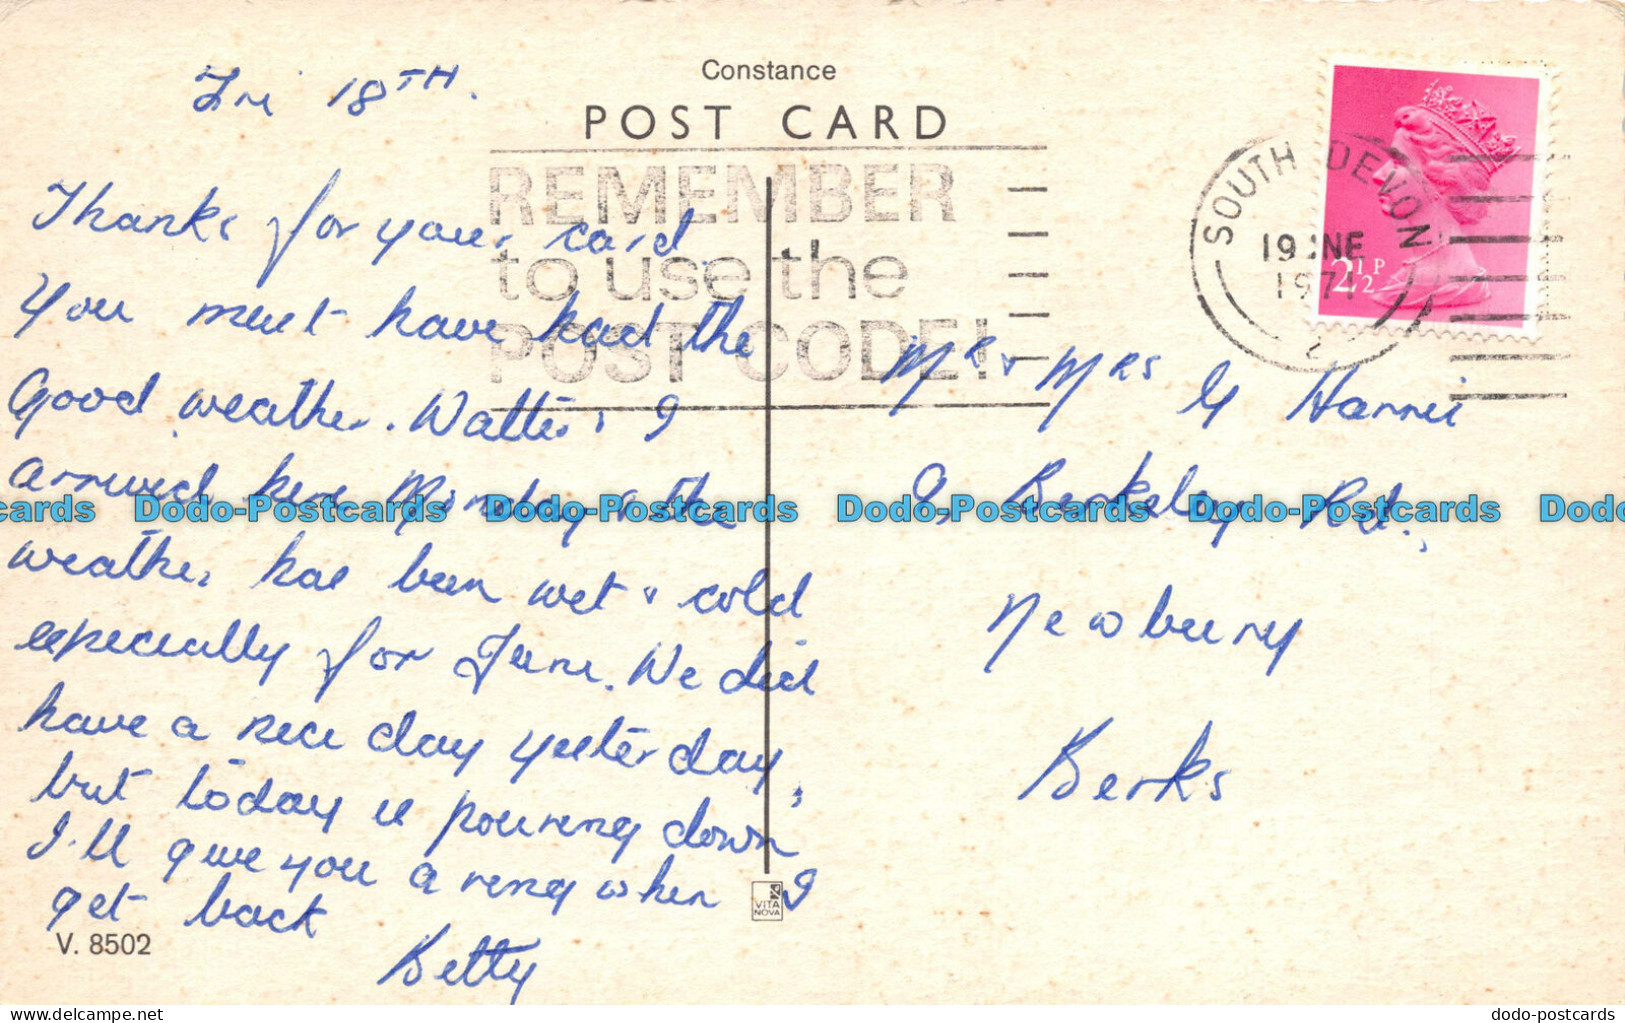 Constance
POST CARD
Fri 18TH.
REMEMBER
to use the
POST CODE!
SOUTH DEVON
19 JNE
1971
2
2½P
Thanks for your card.
You must have had the
Good weather. Walter & I
arrived here Monday & the
weather has been wet & cold
especially for June. We did
have a nice day yesterday,
but today is pouring down
I'll give you a ring when I
get back
Betty
Mr & Mrs G Harris
9, Berkeley Rd.,
Newbury
Berks
VITA
NOVA
V. 8502
Dodo-Postcards Dodo-Postcards Dodo-Postcards Dodo-Postcards
www.delcampe.net
dodo-postcards